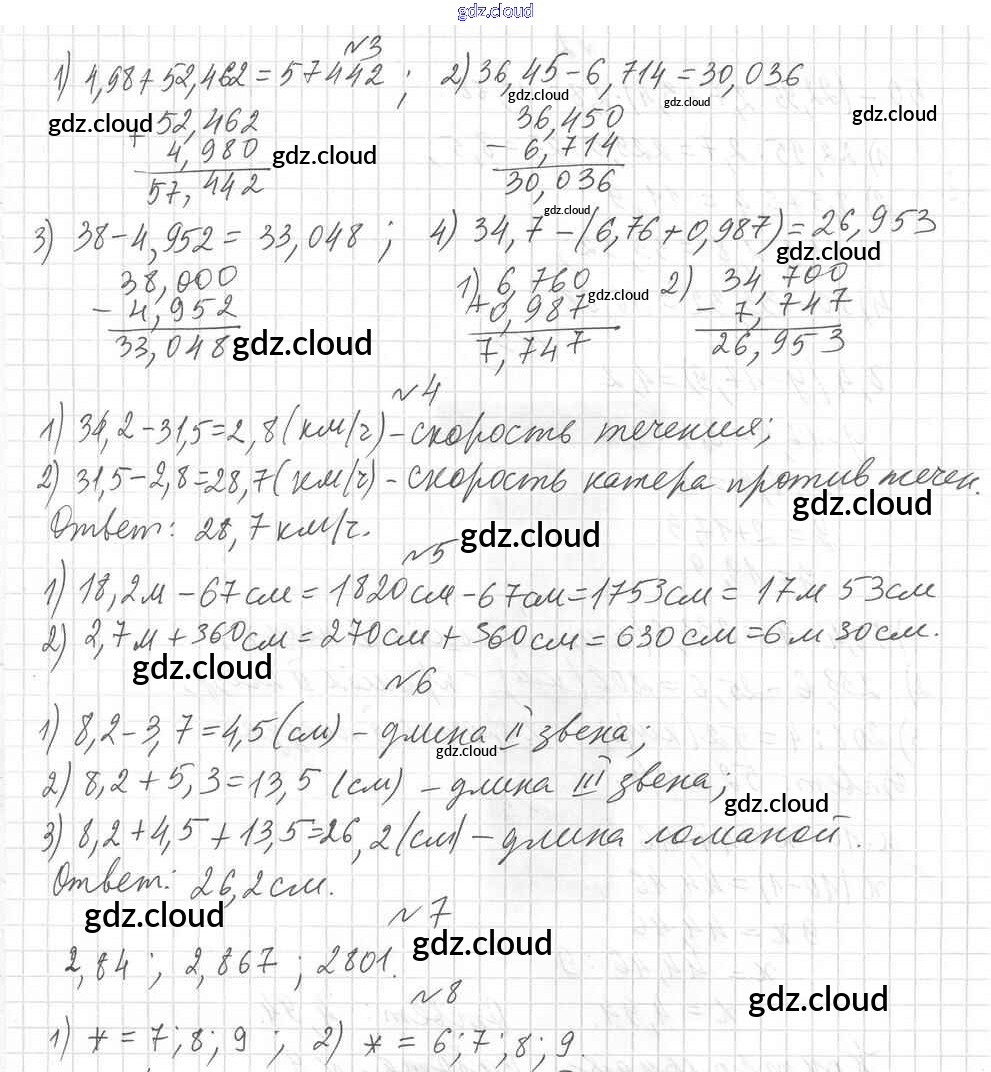 gdz.cloud
№3
1) 4,98 + 52,462 = 57442 ; 2) 36,45 - 6,714 = 30,036
gdz.cloud gdz.cloud gdz.cloud
gdz.cloud 52,462 36,450
+ 4,980 gdz.cloud - 6,714
57,442 30,036
gdz.cloud
3) 38 - 4,952 = 33,048 ; 4) 34,7 - (6,76 + 0,987) = 26,953
gdz.cloud
38,000 1) 6,760 gdz.cloud 2) 34,700
- 4,952 + 0,987 - 7,747
33,048 gdz.cloud 7,747 26,953
№4
1) 34,2 - 31,5 = 2,8 (км/ч) - скорость течения;
2) 31,5 - 2,8 = 28,7 (км/ч) - скорость катера против течен.
gdz.cloud
Ответ: 28,7 км/ч.
gdz.cloud
№5
1) 18,2м - 67см = 1820см - 67см = 1753см = 17м 53см
2) 2,7м + 360см = 270см + 360см = 630см = 6м 30см.
gdz.cloud
№6
1) 8,2 - 3,7 = 4,5 (см) - длина II звена;
gdz.cloud
2) 8,2 + 5,3 = 13,5 (см) - длина III звена;
gdz.cloud
3) 8,2 + 4,5 + 13,5 = 26,2 (см) - длина ломаной.
Ответ: 26,2 см.
gdz.cloud
№7
gdz.cloud
2,84 ; 2,867 ; 2801.
№8
gdz.cloud
1) * = 7; 8; 9 ; 2) * = 6; 7; 8; 9.